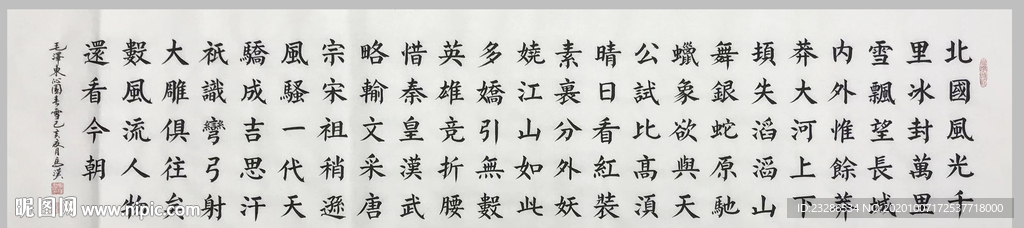 北國風光千
里冰封萬里
雪飄望長城
内外惟餘莽
莽大河上下
頓失滔滔山
舞銀蛇原馳
蠟象欲與天
公試比高湏
晴日看紅裝
素裹分外妖
嬈江山如此
多嬌引無數
英雄竞折腰
惜秦皇漢武
略輸文采唐
宗宋祖稍遜
風騷一代天
驕成吉思汗
祇識彎弓射
大雕俱往矣
數風流人物
還看今朝
毛澤東沁園春雪己亥
昵图网 www.nipic.com
ID:23286534 NO:20201007172537718000